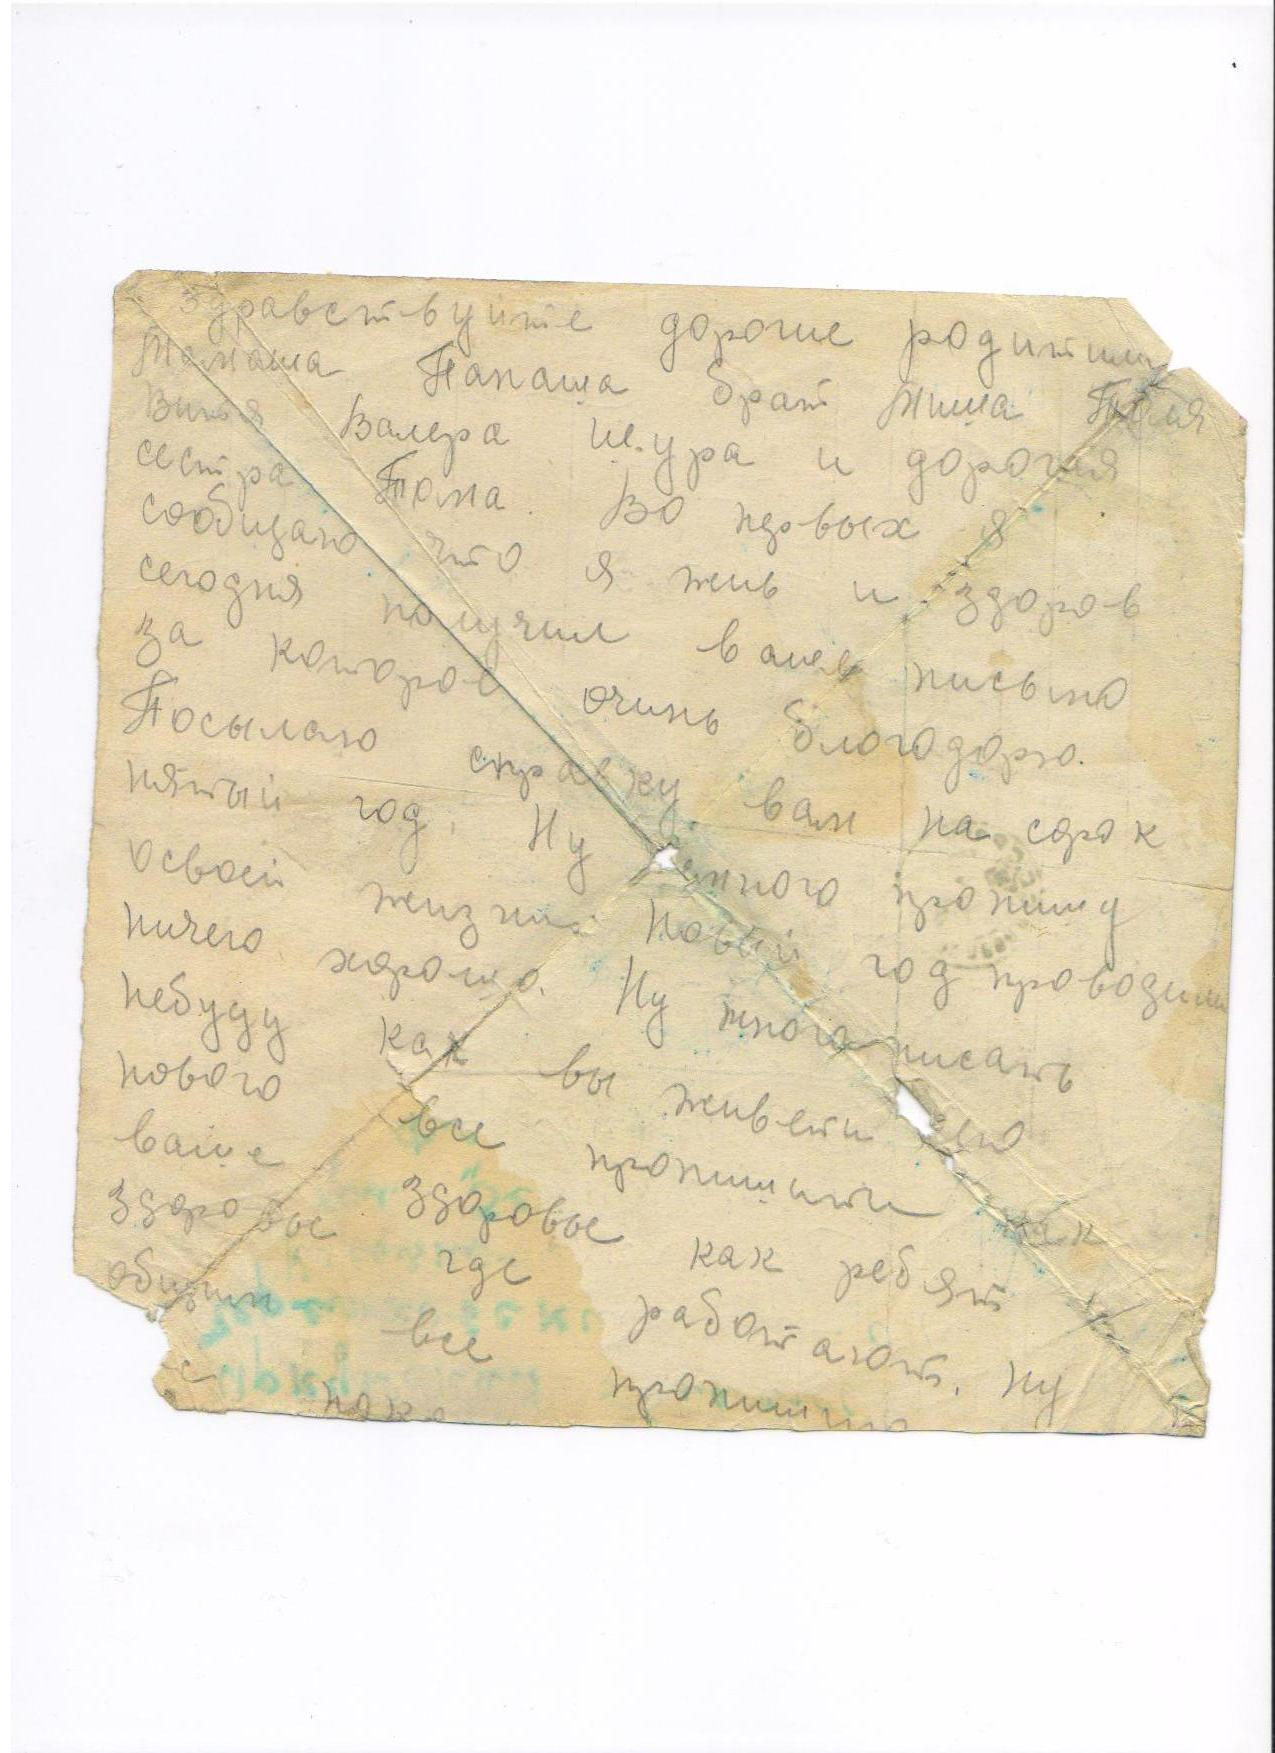 Здравствуйте дорогие родители
Мамаша Папаша брат Миша Толя
Витя Валера Шура и дорогая
сестра Тома. Во первых я
сообщаю что я жив и здоров
сегодня получил ваше письмо
за которое очинь благодорю.
Посылаю справку вам на сорок
пятый год. Ну немного пропишу
освоей жизни. Новый год проводили
ничего хорошо. Ну много писать
небуду как вы живети чего
нового все пропишити как
ваше здоровье как ребят
здоровье где работают. Ну
общим все пропишите
пока